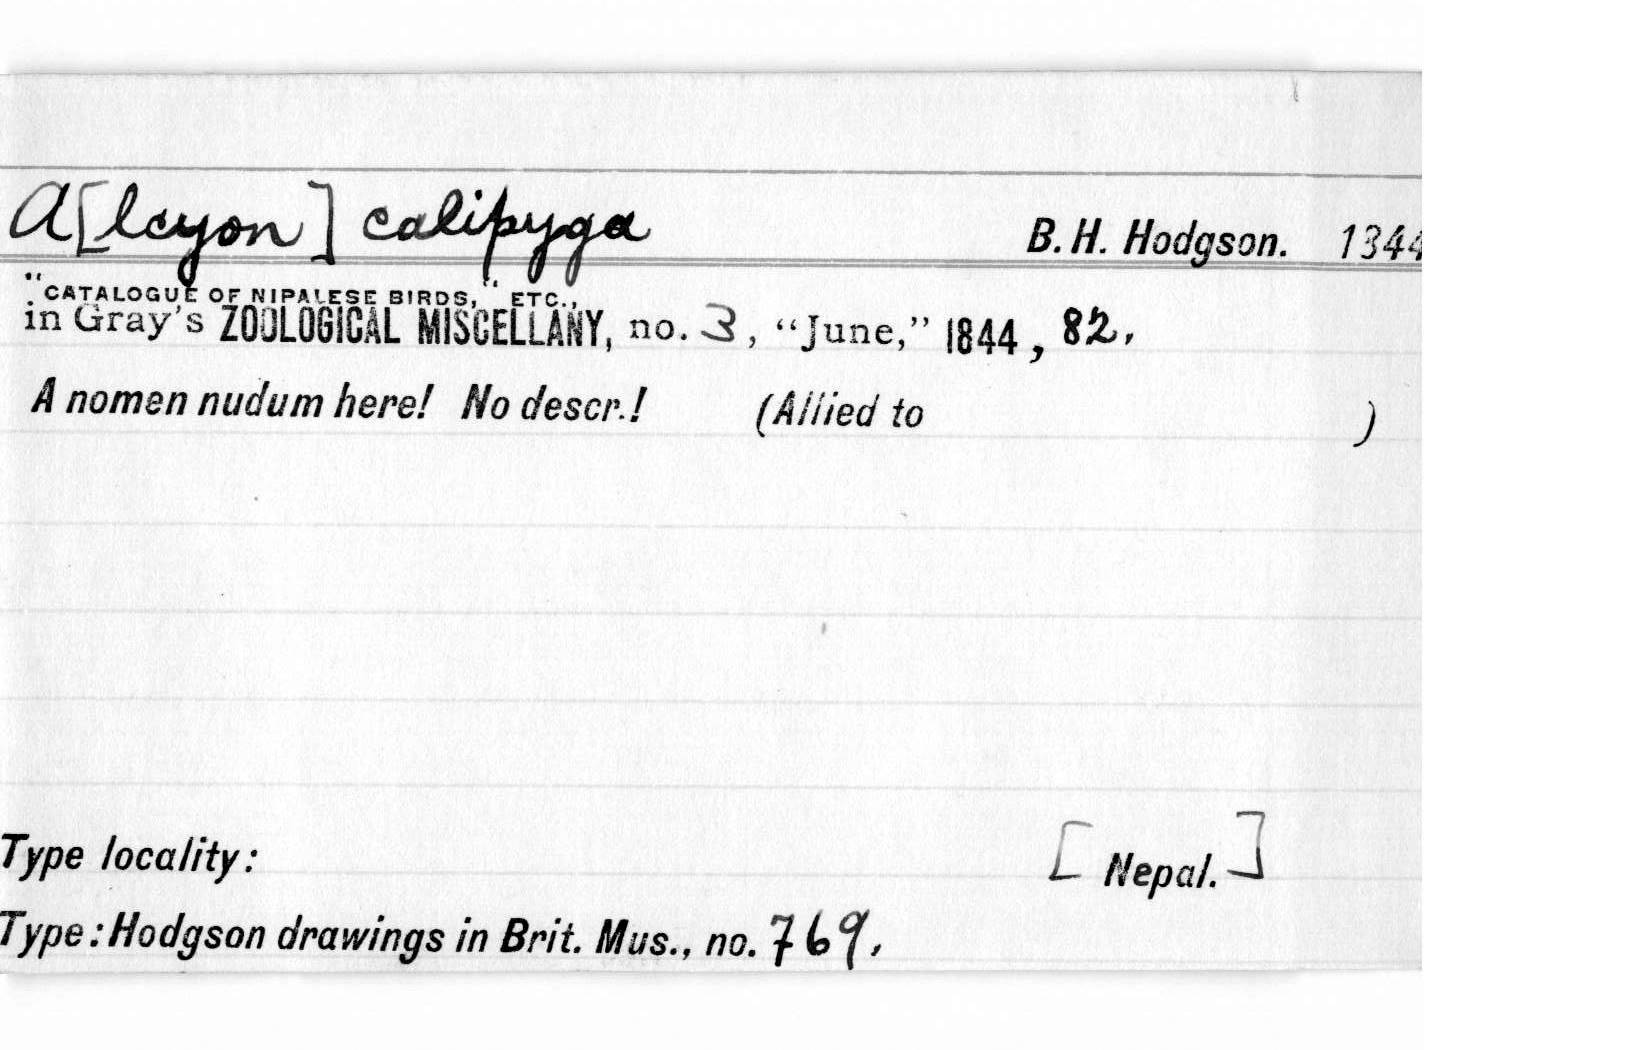 A[lcyon] calipyga B. H. Hodgson. 1844
"CATALOGUE OF NIPALESE BIRDS," ETC.,
in Gray's ZOOLOGICAL MISCELLANY, no. 3, "June," 1844, 82.
A nomen nudum here! No descr.! (Allied to )
Type locality: [Nepal.]
Type: Hodgson drawings in Brit. Mus., no. 769.